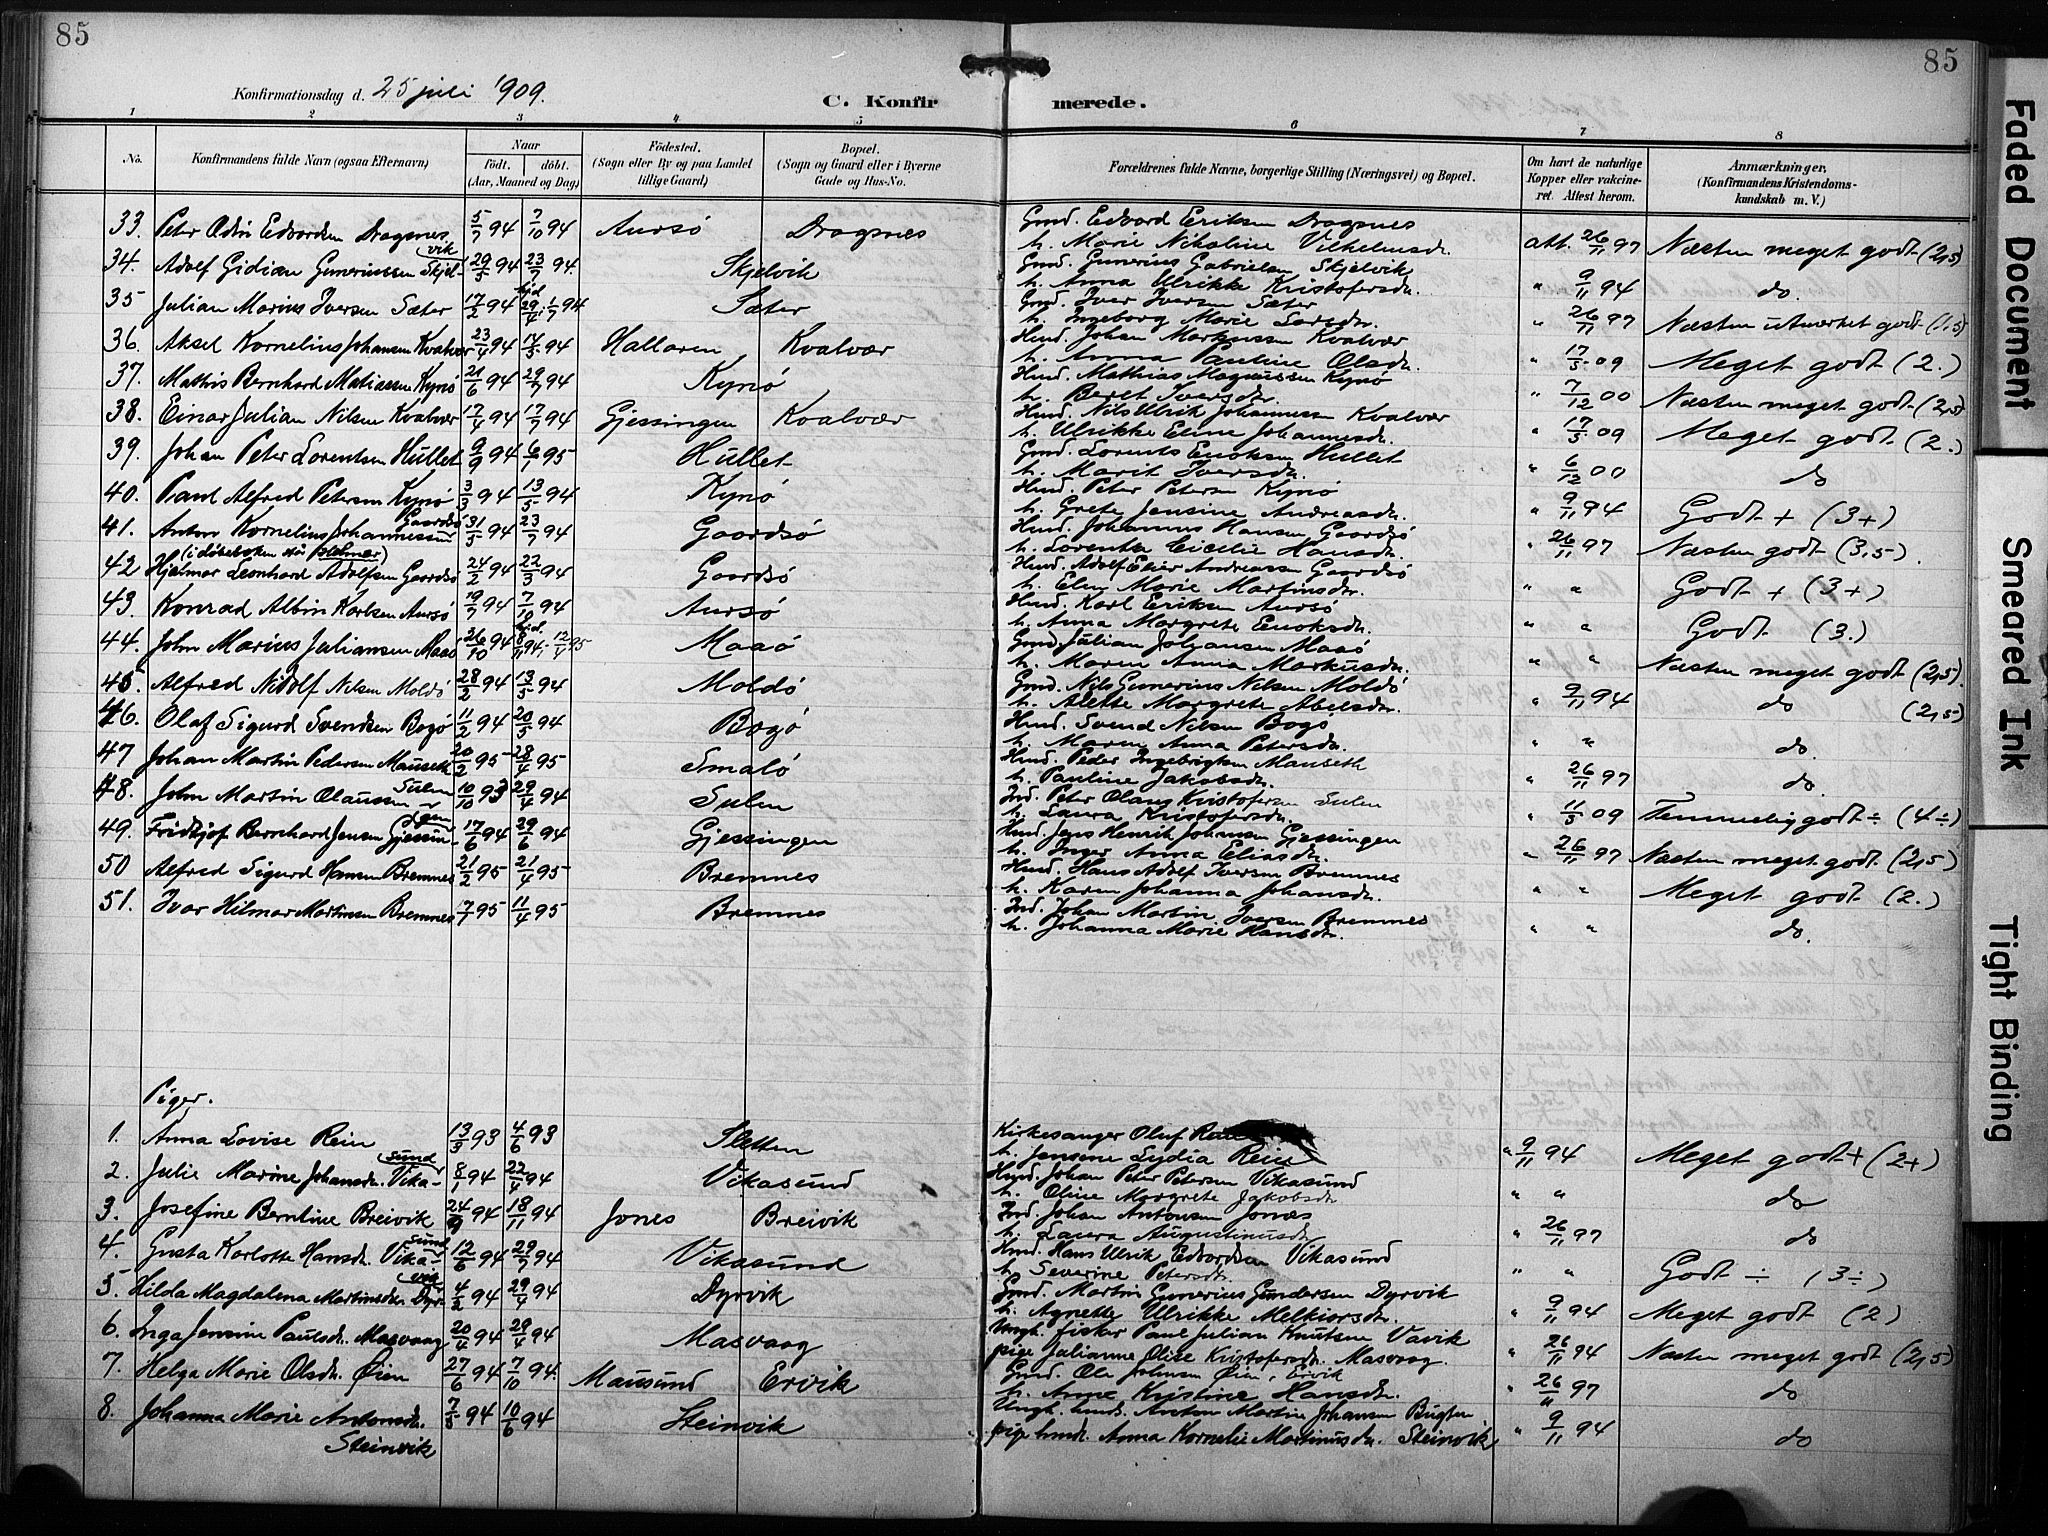 85
85
Konfirmationsdag d. 25 juli 1909.
C. Konfirmerede.
1 2 3 4 5 6 7 8
No.
Konfirmandens fulde Navn (ogsaa Efternavn)
Naar
født. døbt.
(Aar, Maaned og Dag)
Fødested.
(Sogn eller By og paa Landet
tillige Gaard)
Bopæl.
(Sogn og Gaard eller i Byerne
Gade og Hus-No.
Forældrenes fulde Navne, borgerlige Stilling (Næringsvei) og Bopæl.
Om havt de naturlige
Kopper eller vakcine-
ret. Attest herom.
Anmærkninger.
(Konfirmandens Kristendoms-
kundskab m. V.)
33. Peter Odin Edvardsen Dragsnes 5/7 94 7/10 94 Aursø Dragsnes Gmd. Edvard Eriksen Dragsnes
h. Marie Nikoline Vilhelmsdr. att. 26/11 97 Næsten meget godt (2,5)
34. Adolf Gidian Guneriussen Skjelvik 29/5 94 23/7 94 Skjelvik Gmd. Gunerius Gabrielsen Skjelvik
h. Anna Ulrikke Kristofersdr. " 9/11 94 do.
35 Julian Marius Iversen Sæter 17/2 94 hjd. 29/4 1/7 94 Sæter Gmd. Iver Iversen Sæter
h. Ingeborg Marie Larsdr. " 26/11 97 Næsten utmerket godt (1,5)
36. Aksel Kornelius Johansen Kvalvær 23/4 94 14/5 94 Hallaren Kvalvær Hmd. Johan Markussen Kvalvær
h. Anna Pauline Olsdr. " 17/5 09 Meget godt (2.)
37. Mathis Bernhard Matiassen Kynø 21/6 94 29/7 94 Kynø Hmd. Mathias Magnussen Kynø
h. Beret Iversdr. " 7/12 00 Næsten meget godt (2,5)
38. Einar Julian Nilsen Kvalvær 17/4 94 17/7 94 Gjessingen Kvalvær Hmd. Nils Ulrik Johannessen Kvalvær
h. Ulrikke Eline Johannesdr. " 17/5 09 Meget godt (2.)
39. Johan Peter Lorentsen Hullet 9/9 94 6/1 95 Hullet Gmd. Lorents Enoksen Hullet
h. Marit Iversdr. " 6/12 00 do
40. Paul Alfred Petersen Kynø 3/3 94 13/5 94 Kynø Hmd. Peter Petersen Kynø
h. Grete Jensine Andreasdr. " 9/11 94 Godt + (3+)
41. Anton Kornelius Johannessen Gaardsø 31/5 94 23/7 94 Gaardsø Hmd. Johannes Hansen Gaardsø
h. Lorentse Cicelie Hansdr. " 26/11 97 Næsten godt (3,5).
(i døbeboken står Helmer)
42 Hjalmar Leonhard Adolfsen Gaardsø 24/2 94 22/3 94 Gaardsø Hmd. Adolf Elier Andreassen Gaardsø
h. Elen Marie Martinsdr. " " Godt + (3+)
43. Konrad Albin Karlsen Aursø 19/7 94 7/10 94 Aursø Hmd. Karl Eriksen Aursø
h. Anna Margrete Enoksdr. " " Godt (3.)
44. John Marius Juliansen Maaø 26/10 94 hjd. 8/11 94 12/4 95 Maaø Gmd Julian Johansen Maaø
h. Maren Anna Markusdr. " " Næsten meget godt (2,5).
45. Alfred Nidolf Nilsen Moldø 28/2 94 13/5 94 Moldø Gmd. Nils Gunerius Nilsen Moldø
h. Alette Margrete Abelsdr. " 9/11 94 do (2,5)
46. Olaf Sigurd Svendsen Bogø 11/2 94 20/5 94 Bogø Hmd. Svend Nilsen Bogø
h. Maren Anna Petersdr. " " do
47 Johan Martin Pedersen Mauseth 20/2 95 28/4 95 Smalø Hmd. Peder Ingebrigtsen Mauseth
h. Pauline Jakobsdr. " 26/11 97 do.
48. John Martin Olaussen Sulen 10/10 93 29/4 94 Sulen Ind. Peter Olaus Kristofersen Sulen
h. Laura Kristofersdr. " 11/5 09 Temmelig godt ÷ (4÷)
49. Fridtjof Bernhard Jensen Gjessingen 17/6 94 29/6 94 Gjessingen Hmd. Jens Henrik Johansen Gjessingen
h. Inger Anna Eliasdr. " 26/11 97 Næsten meget godt (2,5)
50 Alfred Sigurd Hansen Bremnes 21/2 95 21/4 95 Bremnes Hmd. Hans Adolf Iversen Bremnes
h. Karen Johanna Johansdr. " " Meget godt (2.)
51. Ivar Hilmar Martinsen Bremnes 7/1 95 11/4 95 Bremnes Ind. Johan Martin Iversen Bremnes
h. Johanna Marie Hansdr. " " do.
Piger.
1. Anna Lovise Rein 13/3 93 4/6 93 Sletten Kirkesanger Oluf
h. Jensine Lydia Rein " 9/11 94 Meget godt + (2+)
2. Julie Marine Johansdr. Vikasund 8/1 94 22/4 94 Vikasund Hmd. Johan Peter Petersen Vikasund
h. Oline Margrete Jakobsdr. " " do
3. Josefine Berntine Breivik 24/9 94 18/11 94 Jones Breivik Ind. Johan Antonsen Jonæs
h. Laura Augustinusdr. " 26/11 97 do
4. Gusta Karlotte Hansdr. Vikasund 12/6 94 29/7 94 Vikasund Hmd. Hans Ulrik Edvardsen Vikasund
h. Severine Petersdr. " " Godt ÷ (3÷)
5. Hilda Magdalena Martinsdr. Dyrvik 4/2 94 29/4 94 Dyrvik Gmd. Martin Gunerius Gundersen Dyrvik
h. Agnette Ulrikke Melkiorsdr. " 9/11 94 Meget godt (2)
6. Inga Jensine Paulsdr. Masvaag 20/4 94 29/4 94 Masvaag Ungk. fisker Paul Julian Knutsen Vavik
pige Julianne Olise Kristofersdr. Masvaag. " 26/11 94 Næsten meget godt (2,5)
7. Helga Marie Olsdr. Øien 27/6 94 7/10 94. Mausund Ervik Gmd. Ole Johnsen Øien, Ervik
h. Anna Kristine Hansdr. " 26/11 97 do
8. Johanna Marie Antonsdr. Steinvik 7/5 94 10/6 94 Steinvik Ungk. hmds. Anton Martin Johansen Bugten
pige hmdr. Anna Kornelie Martinusdr. Steinvik " 9/11 94 do
Faded Document
Smeared Ink
Tight Binding